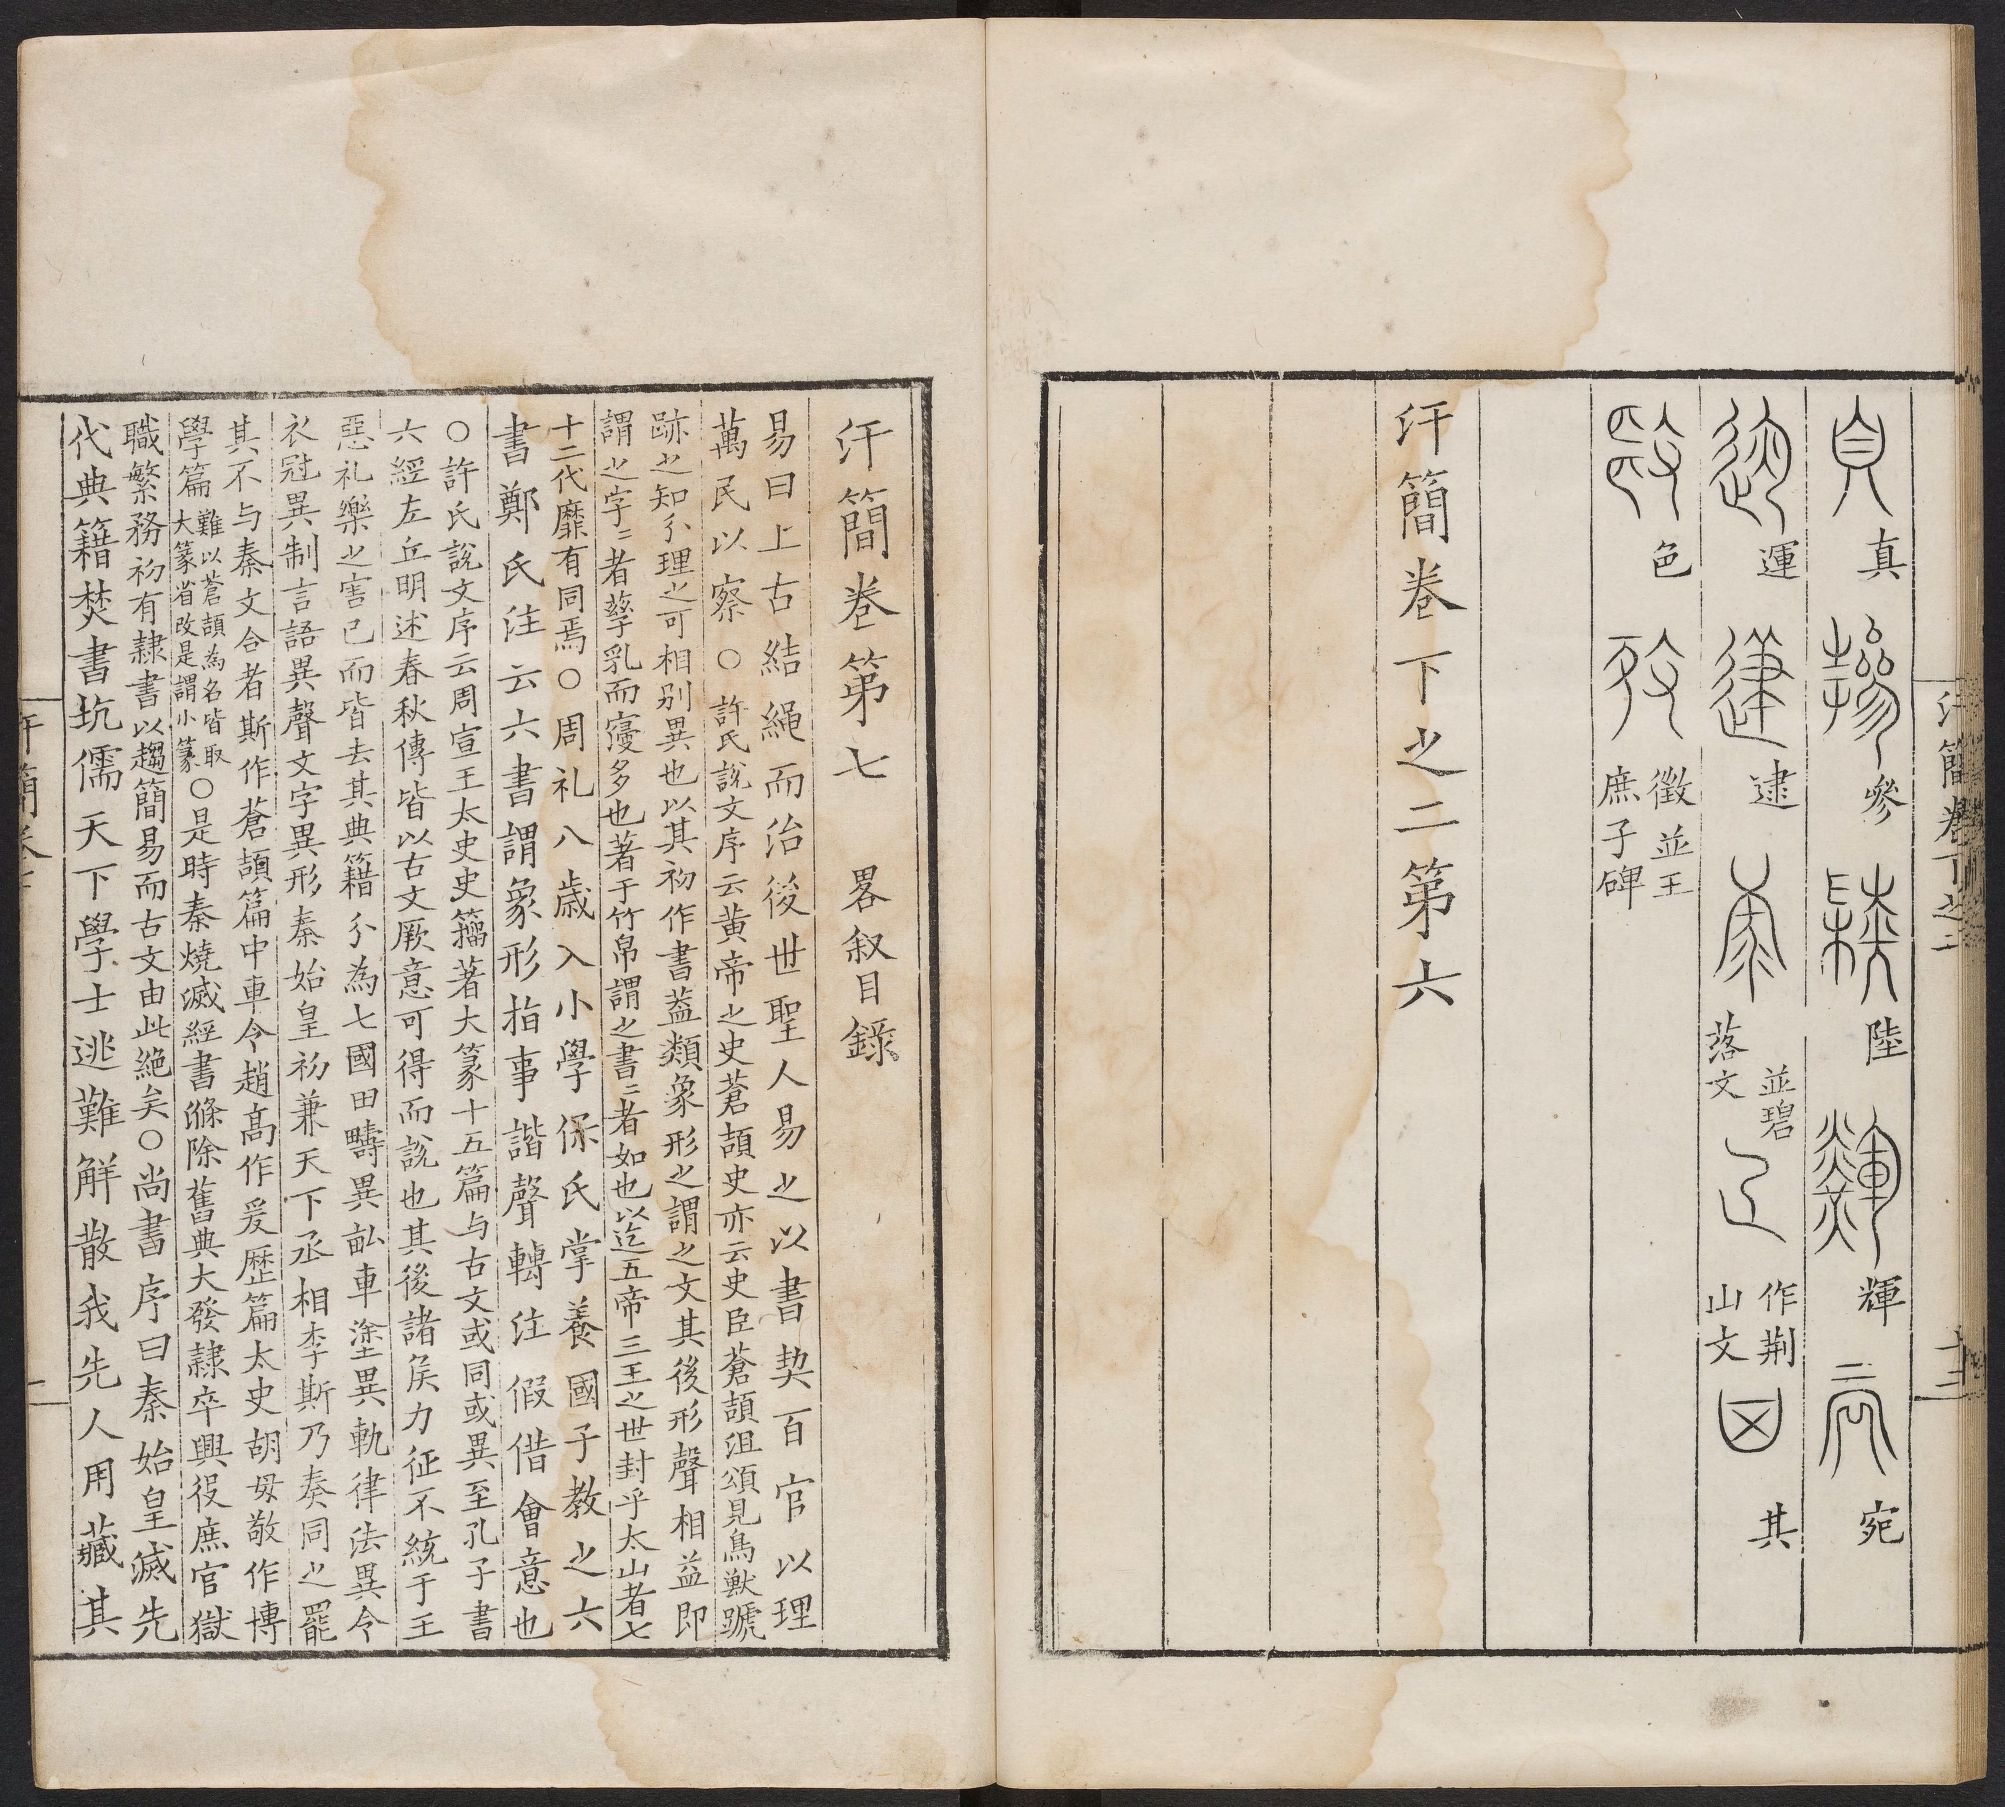 真 參 陸 輝 宛
運 逮 落文 並碧 山文 作荆 其
色 徵 並王庶子碑
汗簡卷下之二第六
汗簡卷下之二
十三
汗簡卷第七 畧叙目錄
易曰上古結繩而治後世聖人易之以書契百官以理
萬民以察○許氏說文序云黄帝之史蒼頡史亦云史臣蒼頡沮頌見鳥獸蹏
跡之知分理之可相别異也以其初作書葢類象形之謂之文其後形聲相益即
謂之字〻者孳乳而寖多也著于竹帛謂之書〻者如也以迄五帝三王之世封乎太山者七
十二代靡有同焉○周礼八歲入小學保氏掌養國子教之六
書鄭氏注云六書謂象形指事諧聲轉注假借會意也
○許氏說文序云周宣王太史史籀著大篆十五篇与古文或同或異至孔子書
六經左丘明述春秋傳皆以古文厥意可得而說也其後諸矦力征不統于王
惡礼樂之害己而皆去其典籍分為七國田疇異畆車塗異軌律法異令
衣冠異制言語異聲文字異形秦始皇初兼天下丞相李斯乃奏同之罷
其不与秦文合者斯作蒼頡篇中車令趙高作爰歴篇太史胡毋敬作博
學篇 難以蒼頡為名皆取大篆省改是謂小篆 ○是時秦燒滅經書滌除舊典大發隷卒興役庶官獄
職繁務初有隷書以趨簡易而古文由此絶矣○尚書序曰秦始皇滅先
代典籍焚書坑儒天下學士逃難解散我先人用藏其